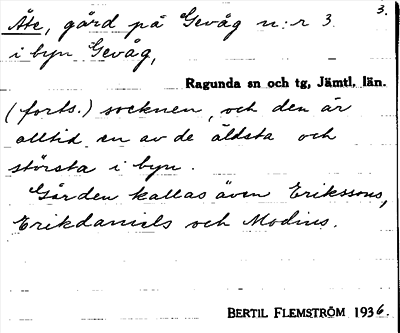 3.
Åte, gård på Gevåg n:r 3
i byn Gevåg,
Ragunda sn och tg, Jämtl. län.
(forts.) socknen, och den är
alltid en av de äldsta och
största i byn.
Gården kallas även Erikssons,
Erikdaniels och Modins.
BERTIL FLEMSTRÖM 1936.